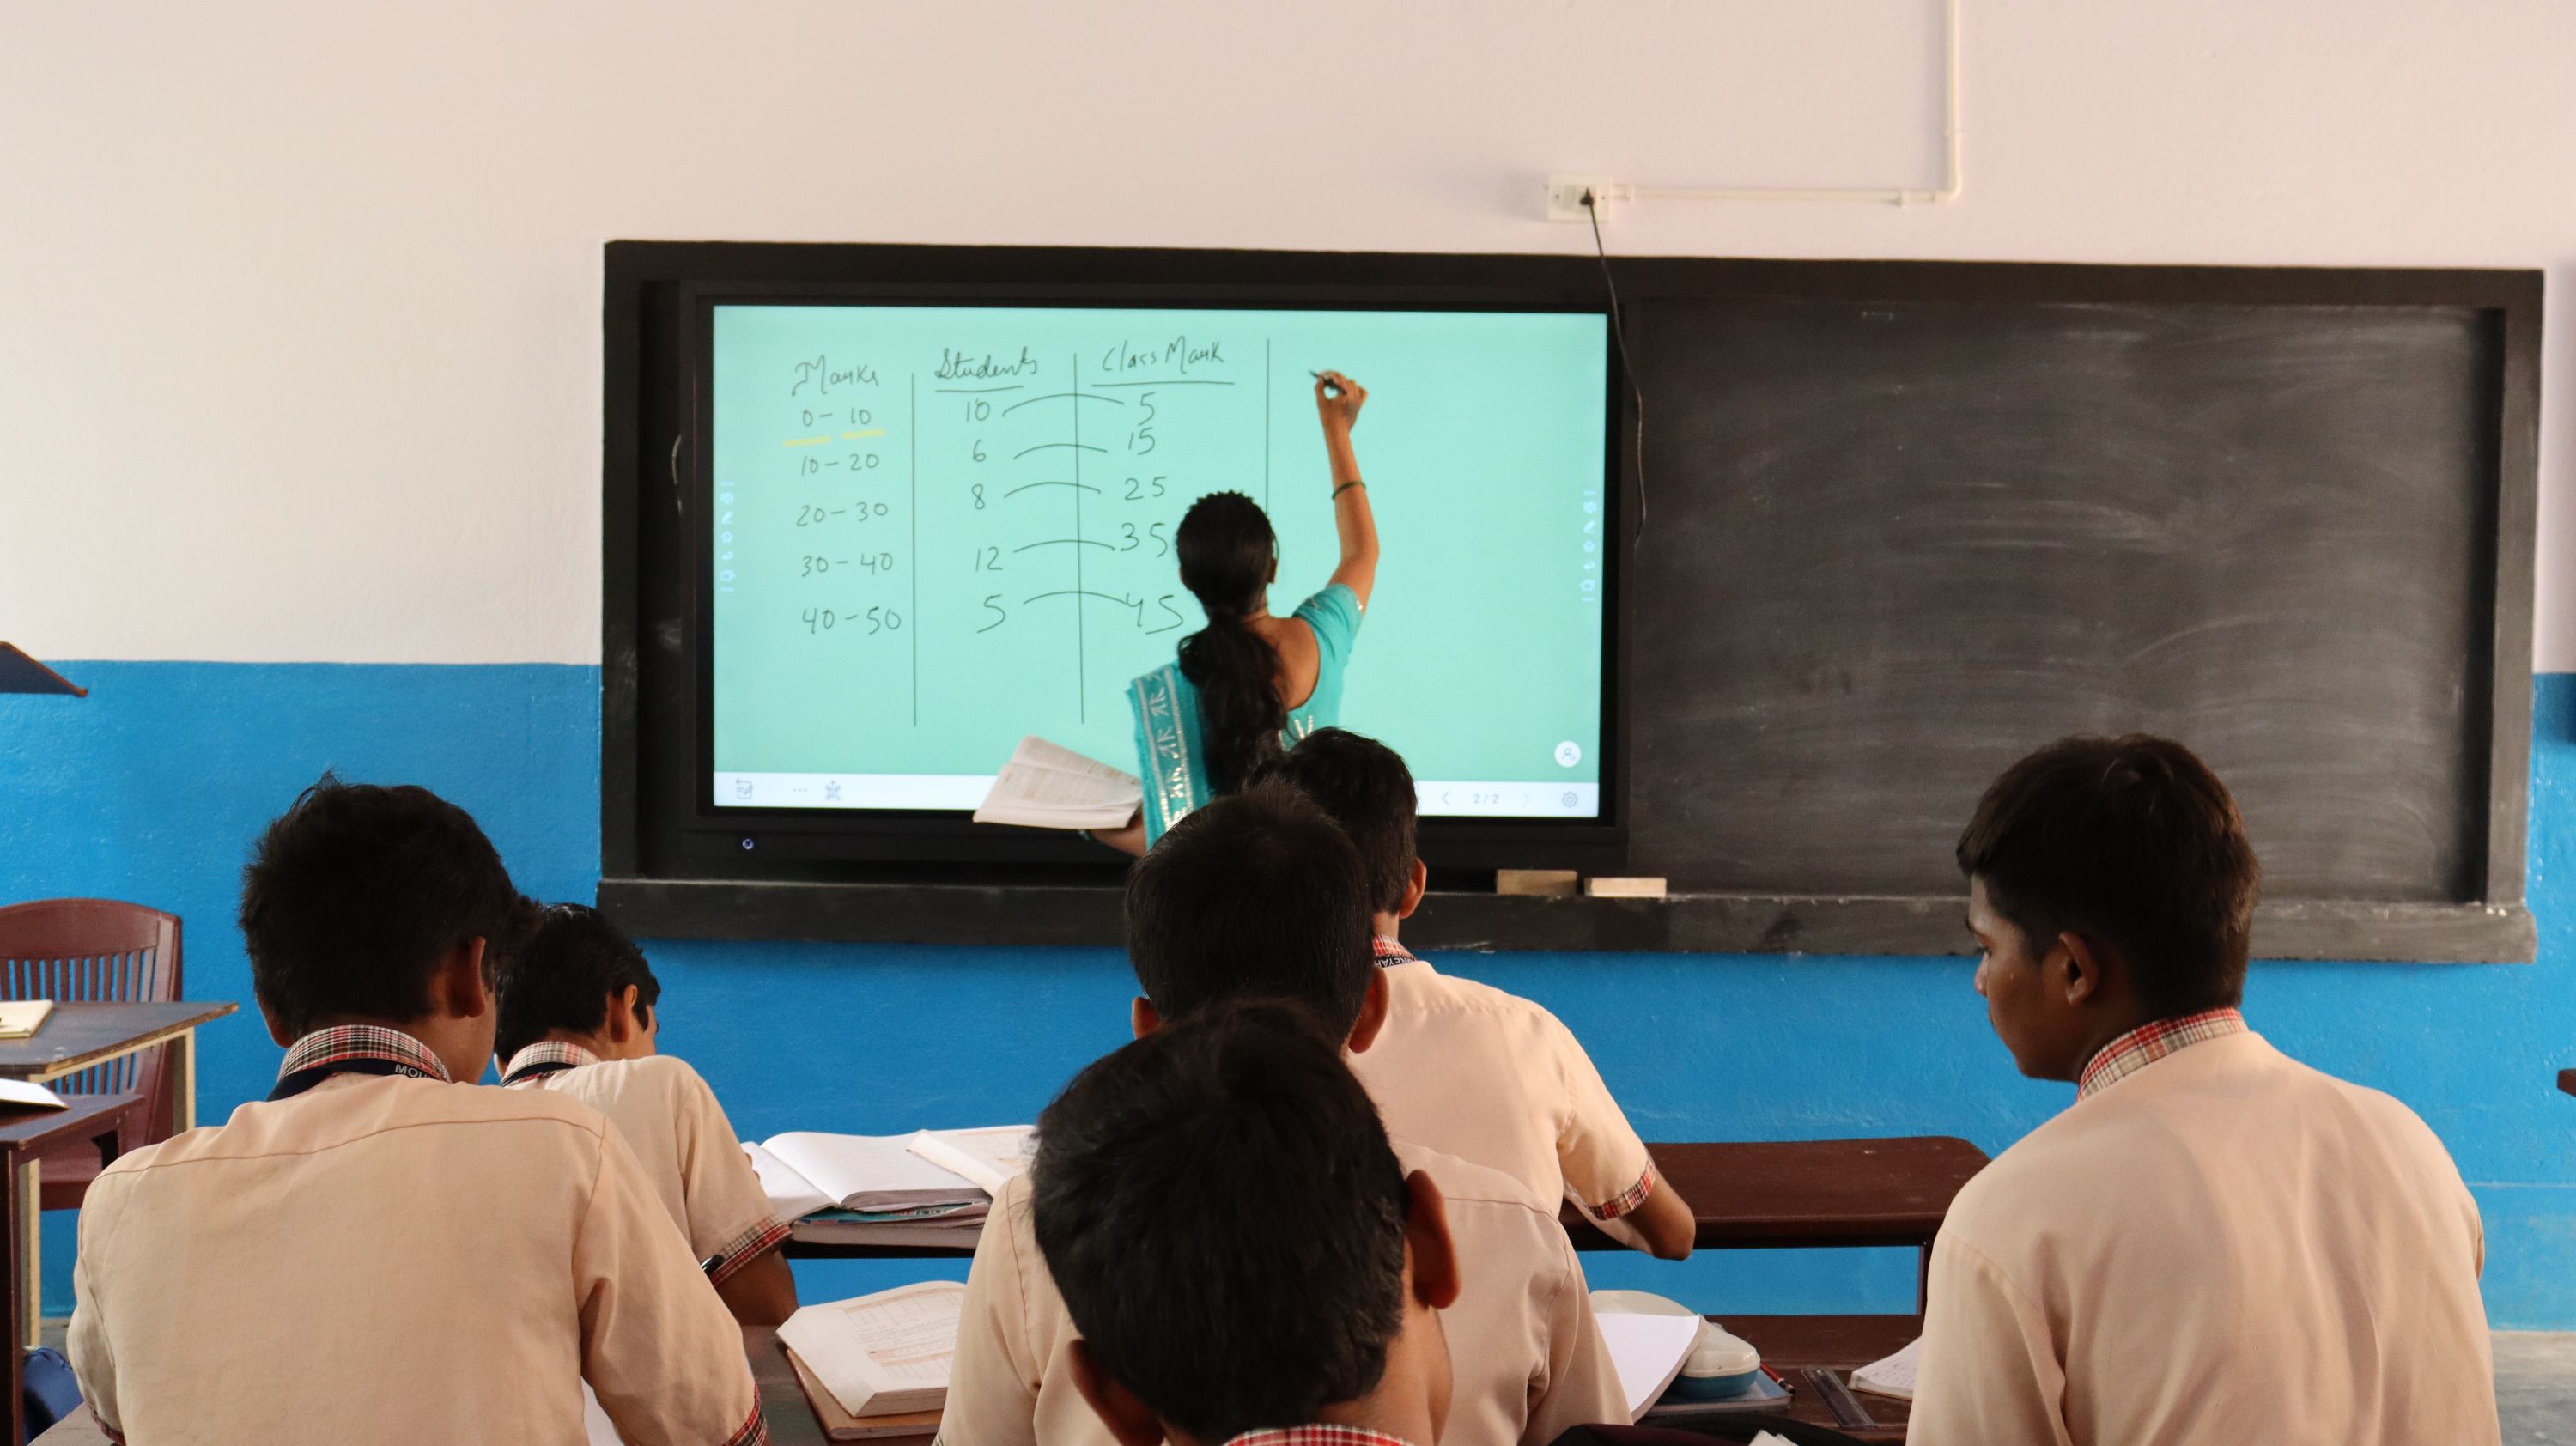 Marks Students Class Mark
0 - 10 10 5
10 - 20 6 15
20 - 30 8 25
30 - 40 12 35
40 - 50 5 45
2/2
MOU